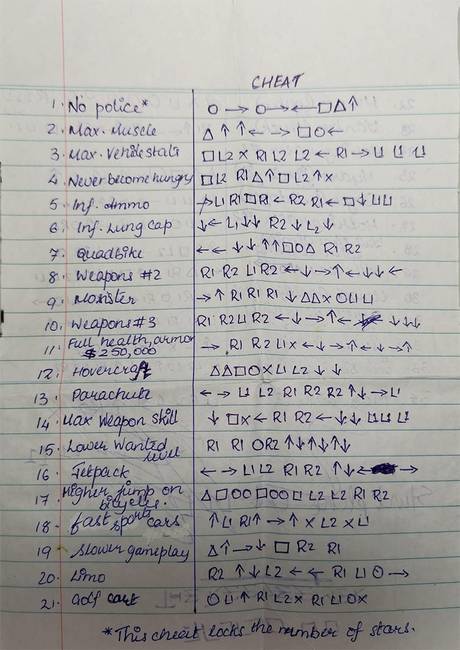 CHEAT
1. No police* ○ → ○ → ← □ △ ↑
2. Max. Muscle △ ↑ ↑ ← → □ ○ ←
3. Max. Vehicle stats □ L2 × R1 L2 L2 ← R1 → L1 L1 L1
4. Never become hungry □ L2 R1 △ ↑ □ L2 ↑ ×
5. Inf. Ammo → L1 R1 □ R1 ← R2 R1 ← □ ↓ L1 L1
6. Inf. Lung cap ↓ ← L1 ↓ ↓ R2 ↓ L2 ↓
7. Quadbike ← ← ↓ ↓ ↑ ↑ □ ○ △ R1 R2
8. Weapons #2 R1 R2 L1 R2 ← ↓ → ↑ ← ↓ ↓ ←
9. Monster → ↑ R1 R1 R1 ↓ △ △ × ○ L1 L1
10. Weapons #3 R1 R2 L1 R2 ← ↓ → ↑ ← ↓ ↓ ↓ ↓
11. Full health, armor
$250,000 → R1 R2 L1 × ← ↓ → ↑ ← ↓ → ↑
12. Hovercraft △ △ □ ○ × L1 L2 ↓ ↓
13. Parachute ← → L1 L2 R1 R2 R2 ↑ ↓ → L1
14. Max Weapon Skill ↓ □ × ← R1 R2 ← ↓ ↓ L1 L1 L1
15. Lower Wanted
level R1 R1 ○ R2 ↑ ↓ ↑ ↓ ↑ ↓
16. Jetpack ← → L1 L2 R1 R2 ↑ ↓ ← →
17. Higher jump on
bicycles. △ □ ○ ○ □ ○ ○ □ L2 L2 R1 R2
18. fast sports cars ↑ L1 R1 ↑ → ↑ × L2 × L1
19. Slower gameplay △ ↑ → ↓ □ R2 R1
20. Limo R2 ↑ ↓ L2 ← ← R1 L1 ○ →
21. Golf cart ○ L1 ↑ R1 L2 × R1 L1 ○ ×
*This cheat locks the number of stars.